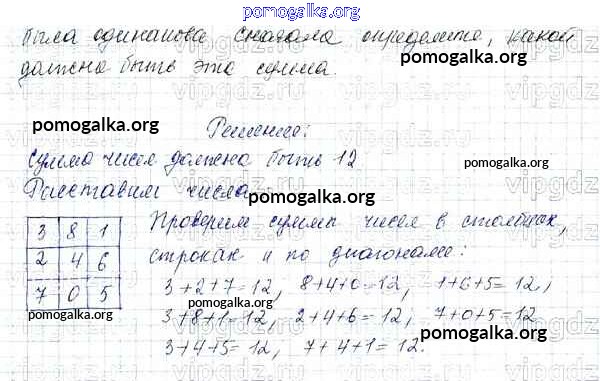 pomogalka.org
была одинакова. Сначала определите, какой
должна быть эта сумма.
pomogalka.org
pomogalka.org
Решение:
pomogalka.org
Сумма чисел должна быть 12
pomogalka.org
Расставим числа.
pomogalka.org
3 8 1
2 4 6
7 0 5
Проверим сумму чисел в столбцах,
строках и по диагонали:
3+2+7=12, 8+4+0=12, 1+6+5=12,
3+8+1=12, 2+4+6=12, 7+0+5=12
3+4+5=12, 7+4+1=12.
pomogalka.org
pomogalka.org
pomogalka.org
pomogalka.org